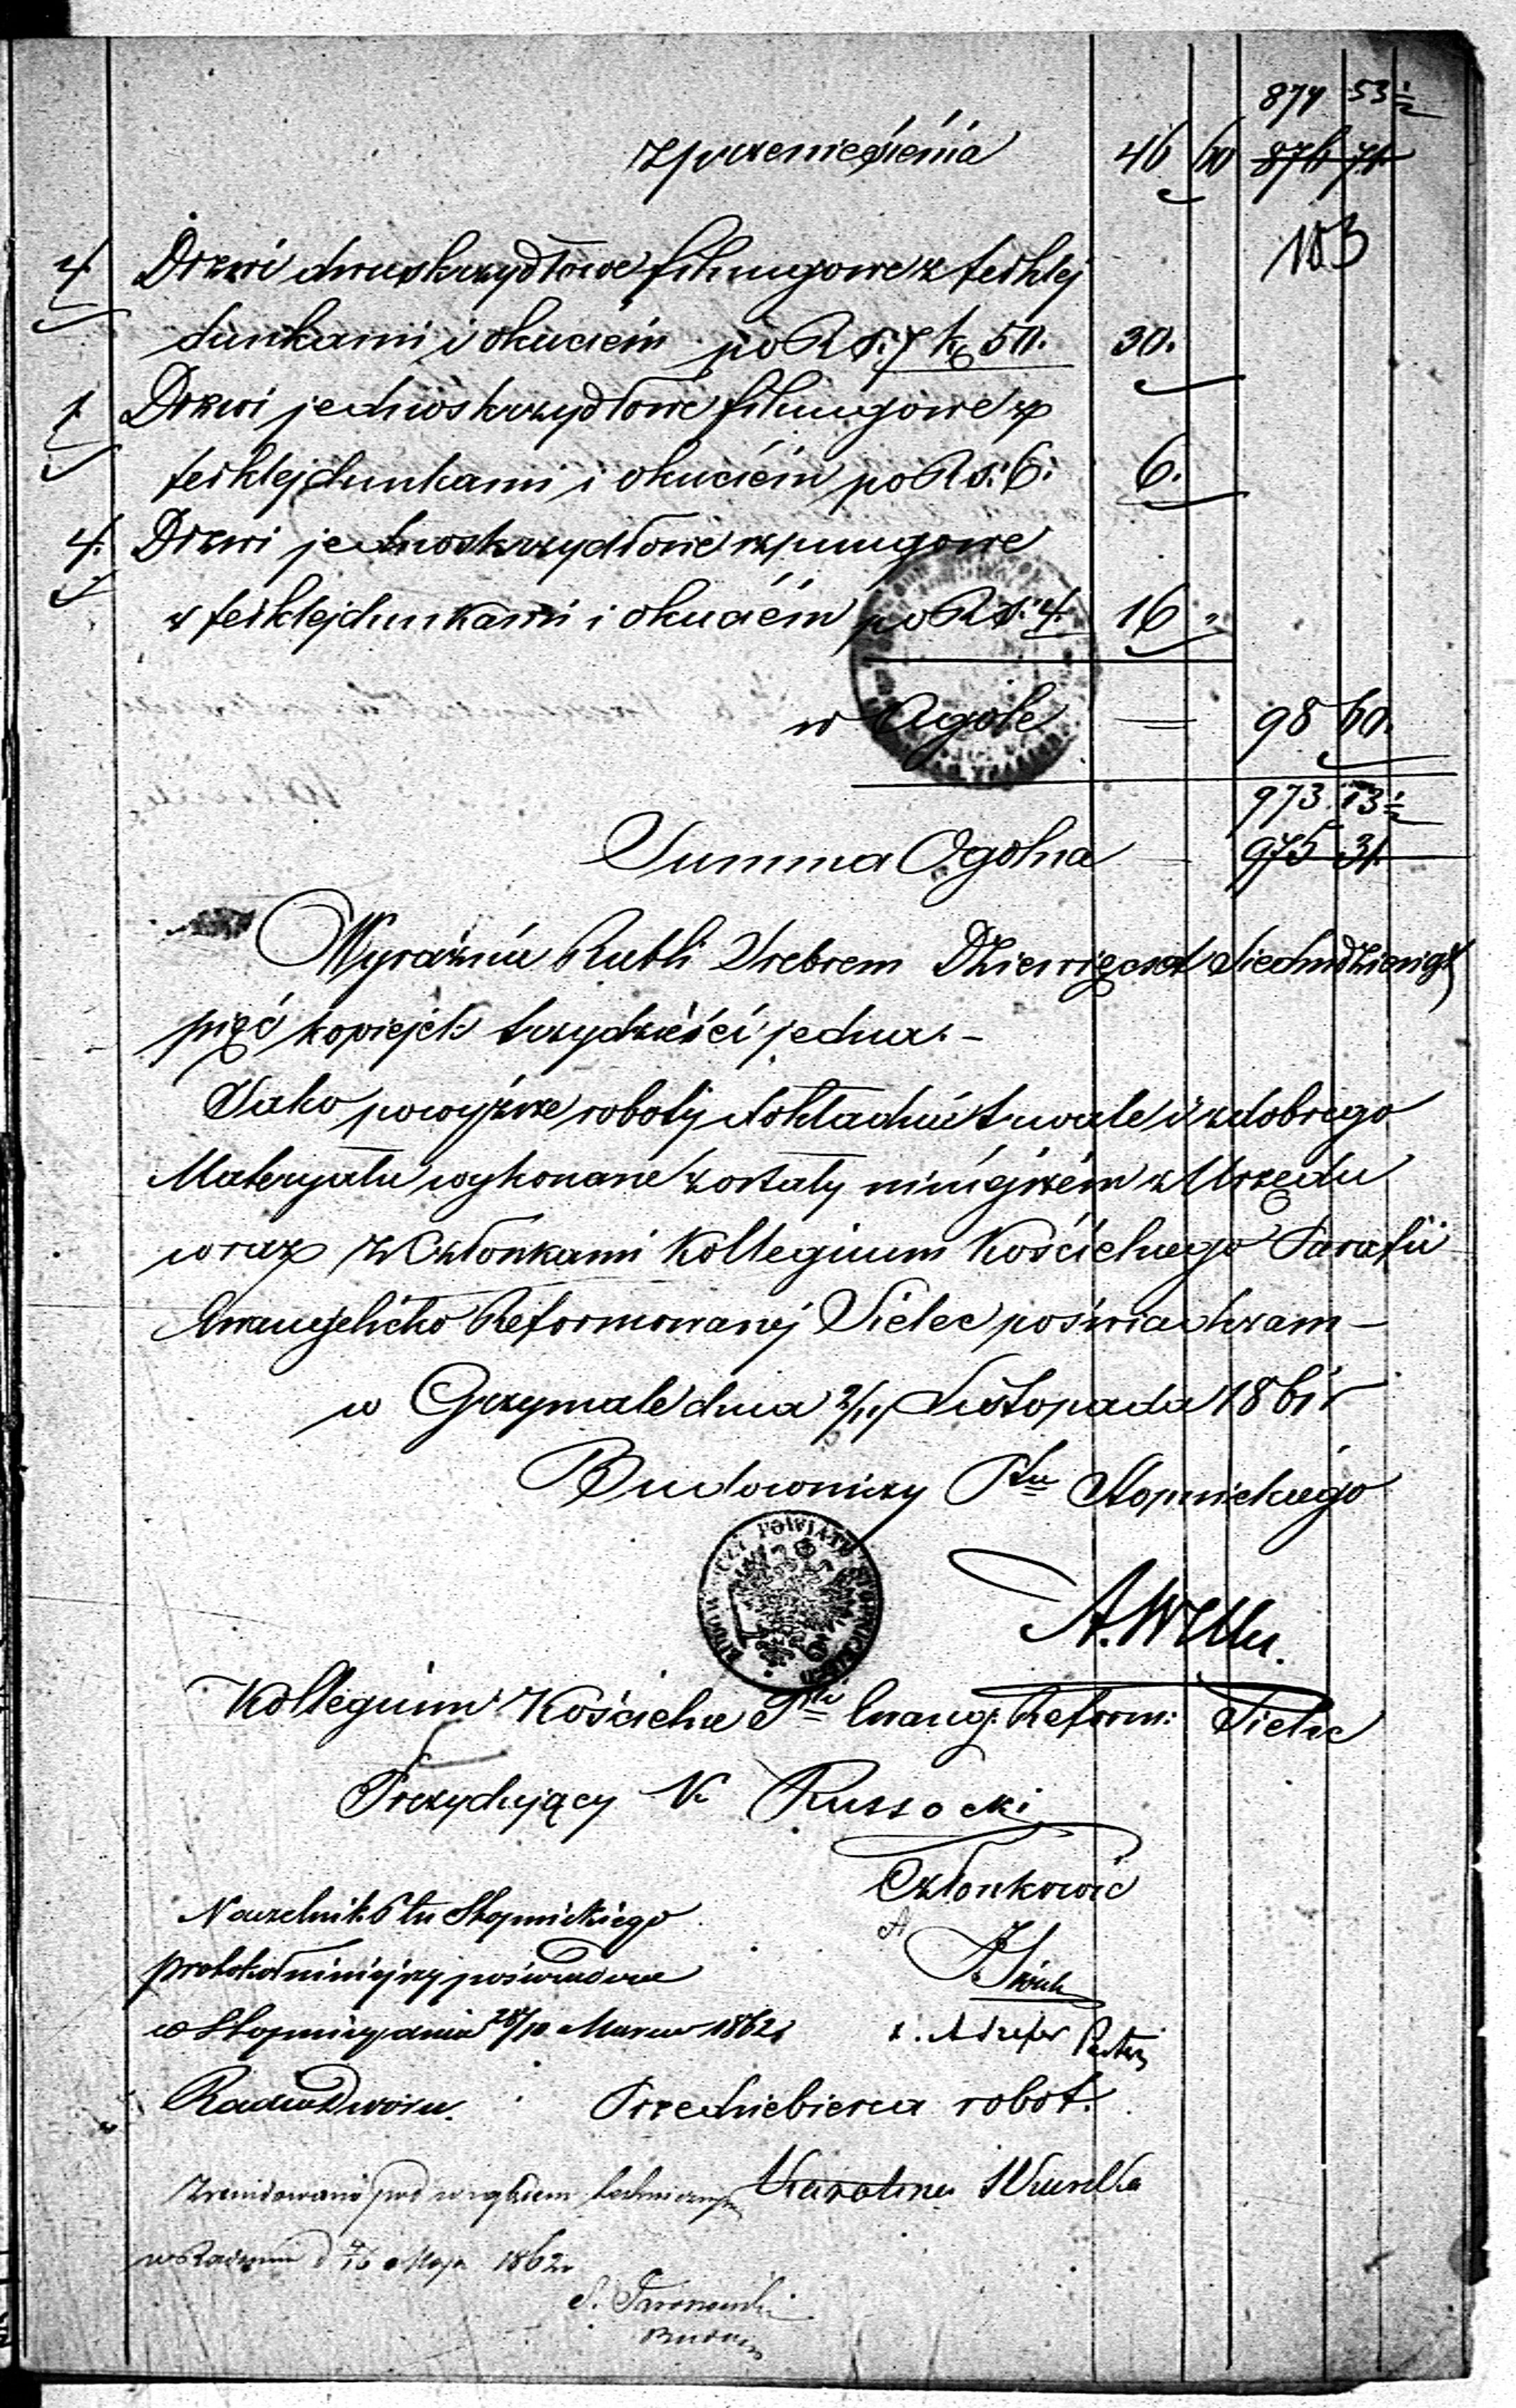 874 53 1/2
z przeniesienia 46 60 876 71
103
4. Drzwi dwuskrzydłowe filungowe z feiklej
dunkami i okuciem po Rs. 7 k. 50. 30.
1. Drzwi jednoskrzydłowe filungowe z
feiklejdunkami i okuciem po Rs. 6. 6.
4. Drzwi jednoskrzydłowe szpungowe
z feiklejdunkami i okuciem po Rs. 4. 16 "
w Ogóle = 98 60.
973 13 1/2
Summa Ogólna — 975 31.
Wyraźnie Rubli Srebrem Dziewięćset Siedmdziesiąt
pięć kopiejek trzydzieści jedna. -
Jako powyższe roboty dokładnie trwale i z dobrego
Materyału wykonane zostały niniejszém z Urzędu
wraz z Członkami Kollegium Kościelnego Parafii
Ewangelicko Reformowanej Sielec poświadczam —
w Grzymale dnia 2/14 Listopada 1861 r
Budowniczy Ptu Stopnickiego
BUDOWNICZY POWIATU STOPNICKIEGO
A. Weller.
Kollegium Kościelne Pfii Ewang: Reform: Sielec
Prezydujący K Russocki
Członkowie
Naczelnik Ptu Stopnickiego
protokół niniejszy poświadcza
w Stopnicy dnia 28/10 Marca 1862 r
Radca Dworu. Przedsiebierca robot.
Zrewidowano pod względem technicznym Karolina
w Radomiu d 4/16 Maja 1862 r
S. Tarnowski
Budow